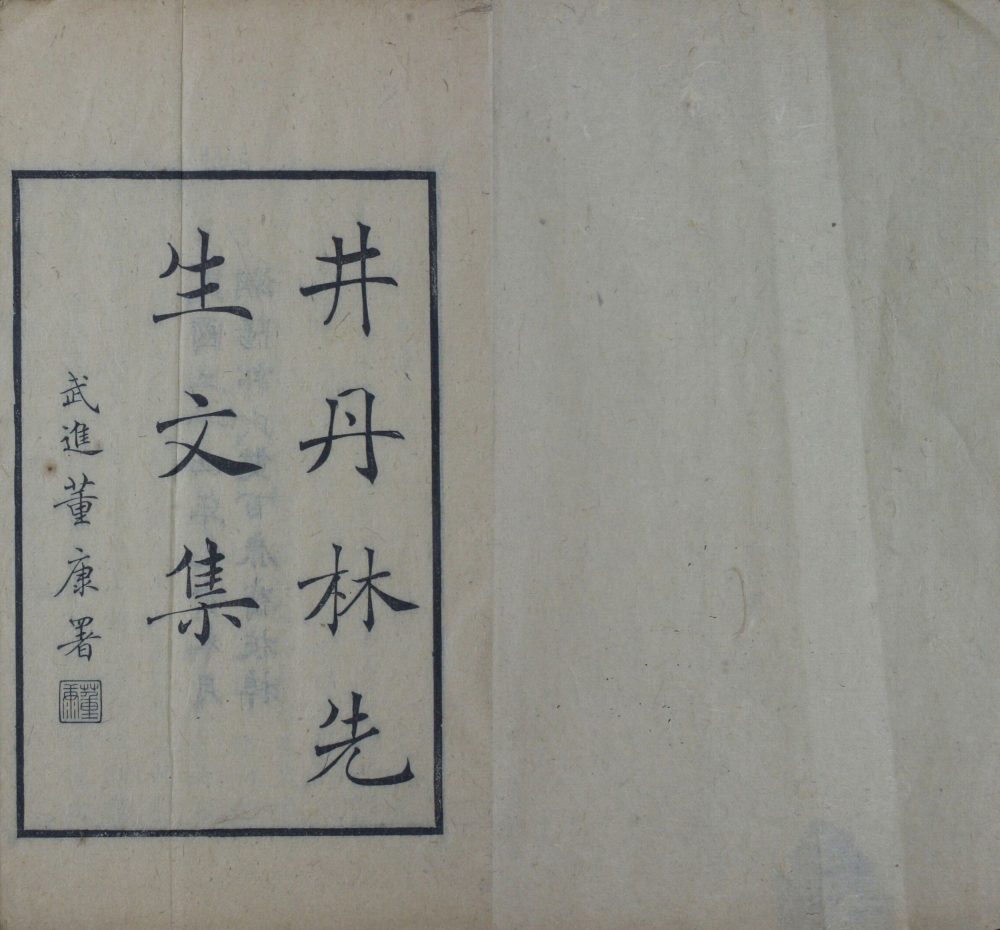 井丹林先
生文集
武進董康署
董康